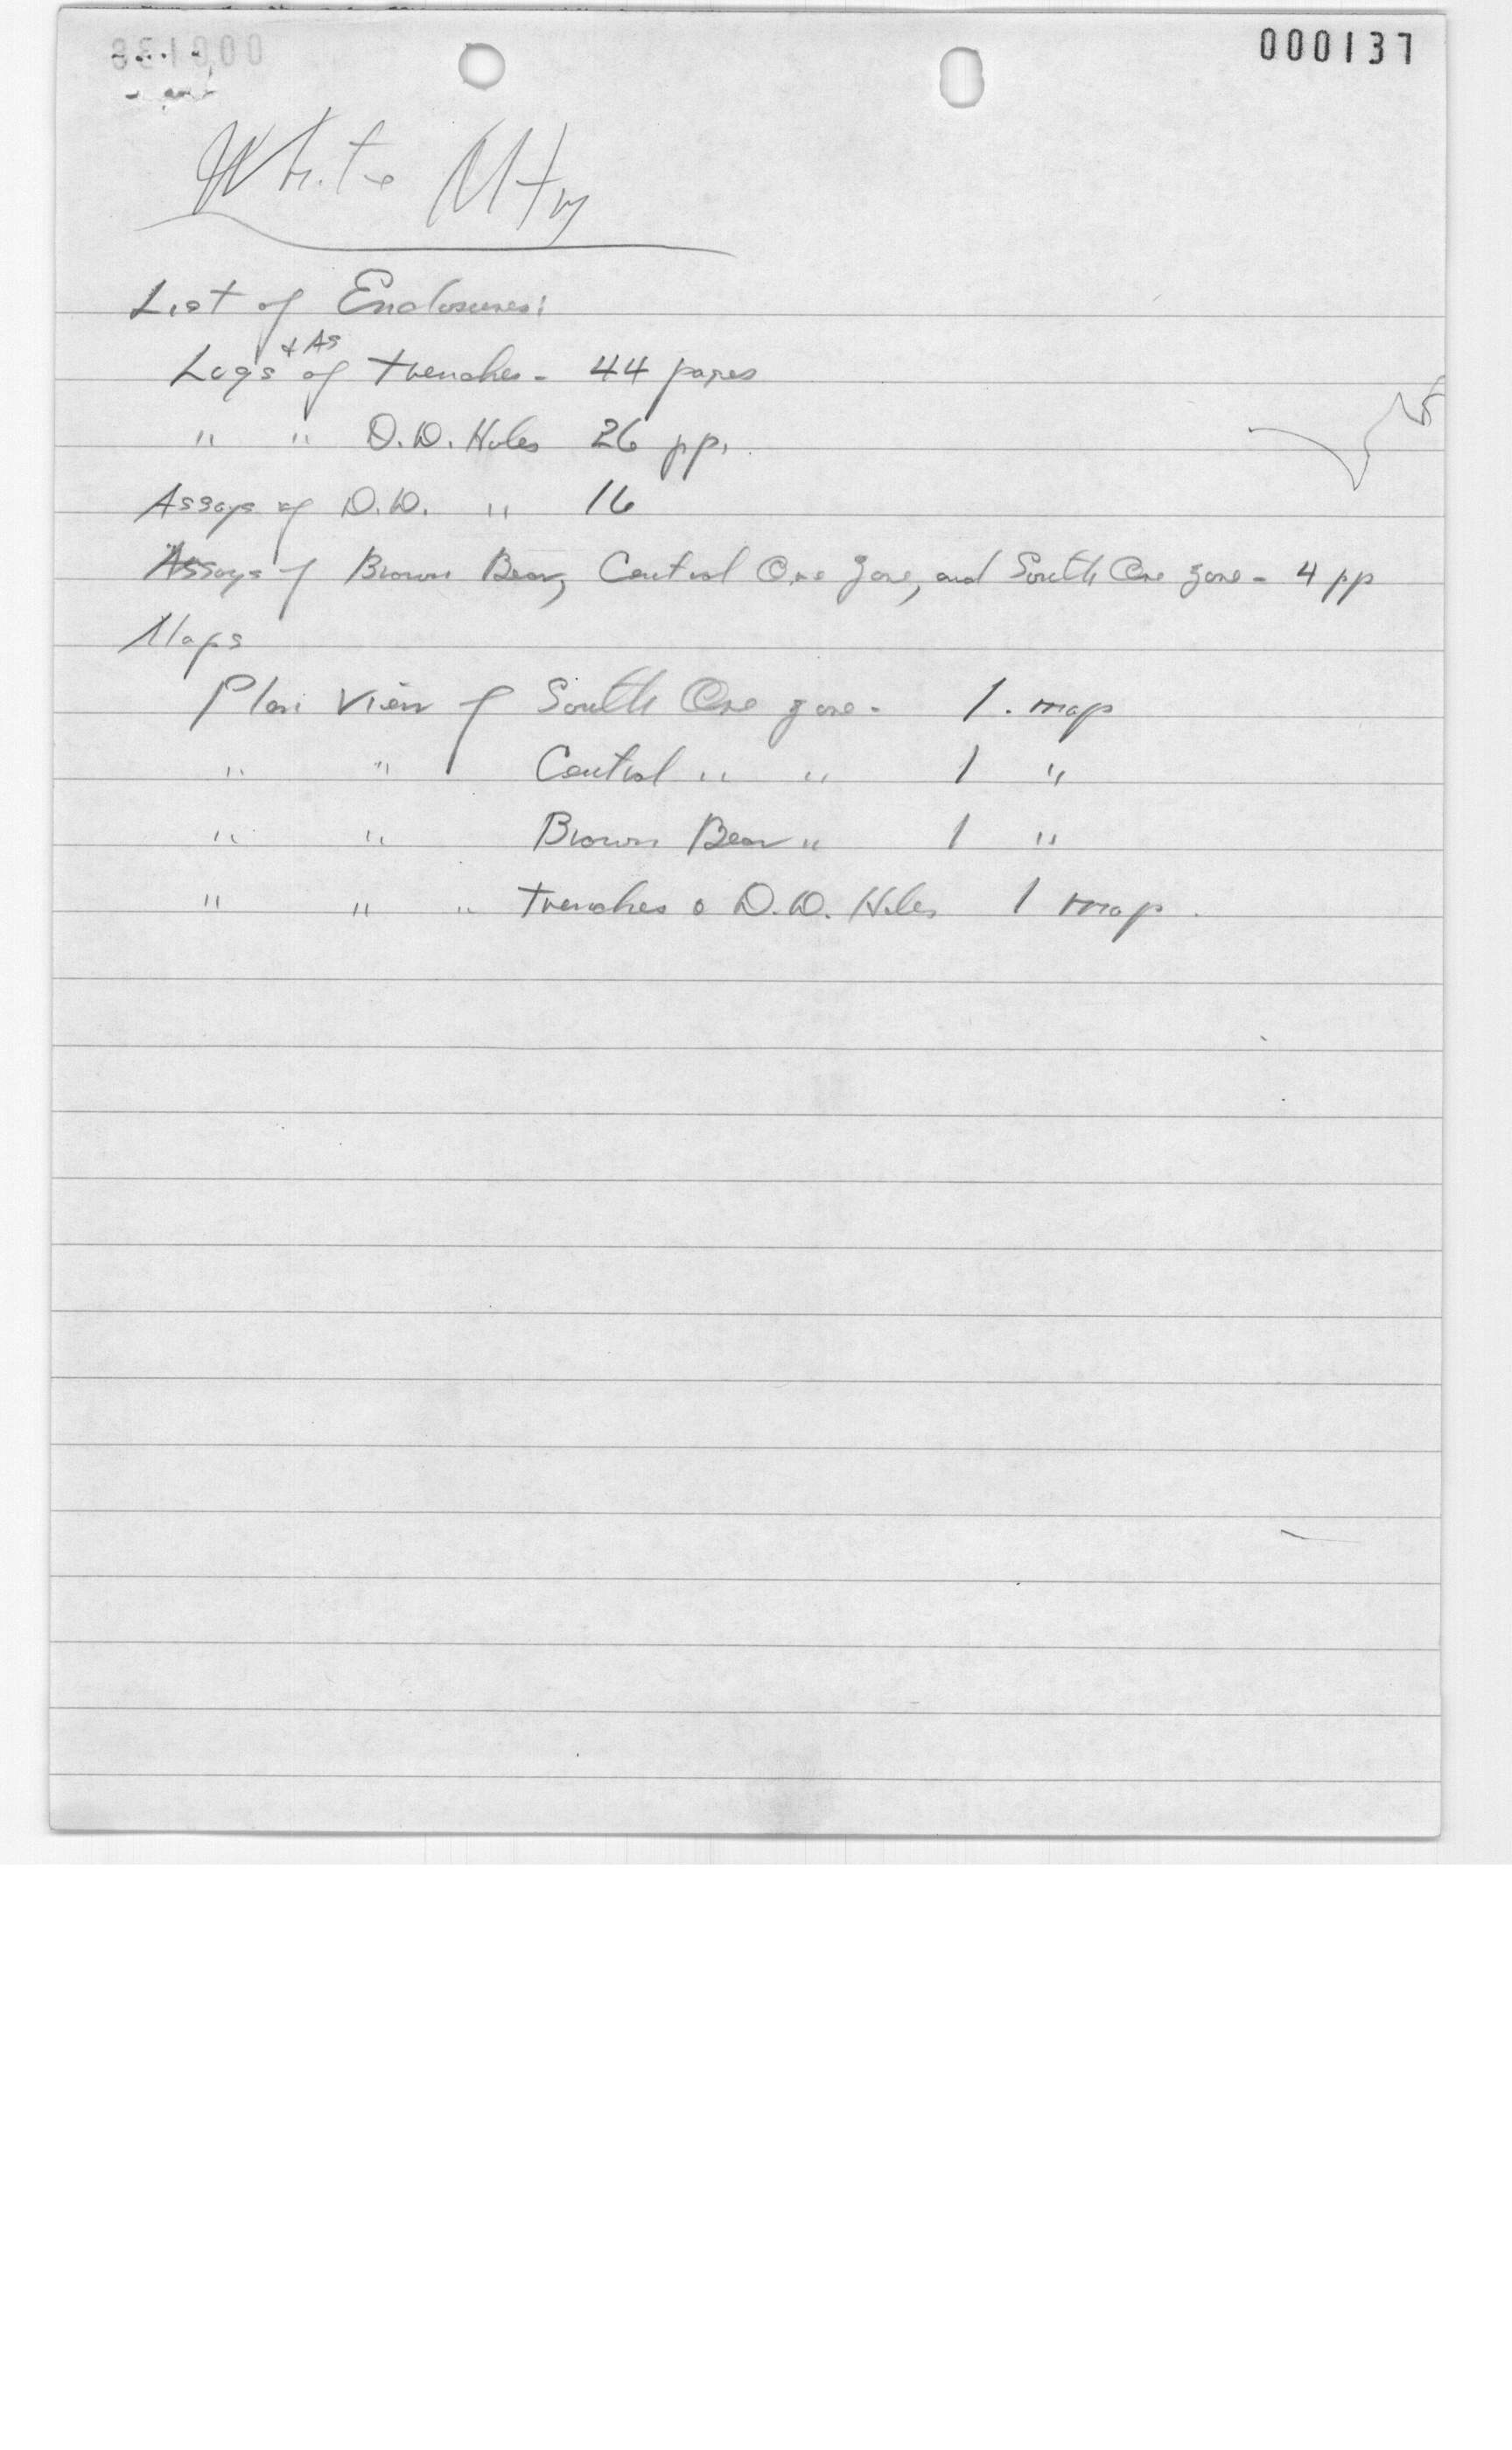 000137
White Mtn
List of Enclosures:
Logs + As of trenches - 44 pages
" " D.D. Holes 26 pp.
Assays of D.D. " 16
Assays of Brown Bear, Central Ore zone, and South Ore zone - 4 pp
Maps
Plan View of South Ore zone - 1 . map
" " Central " " 1 "
" " Brown Bear " 1 "
" " " trenches & D.D. Holes 1 map.